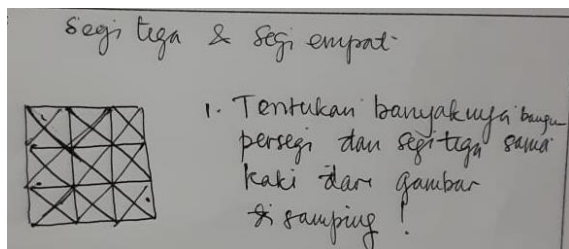 Segi tiga & Segi empat
1. Tentukan banyaknya bangun
persegi dan segitiga sama
kaki dari gambar
di samping !